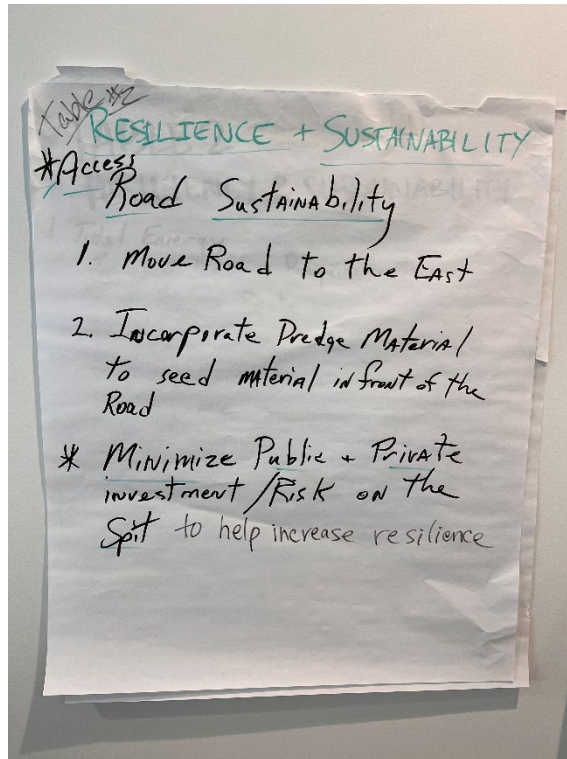 Table #2
RESILIENCE + SUSTAINABILITY
*Access
Road Sustainability
1. Move Road to the East
2. Incorporate Dredge Material
to seed material in front of the
Road
* Minimize Public + Private
investment/Risk on the
Spit to help increase resilience